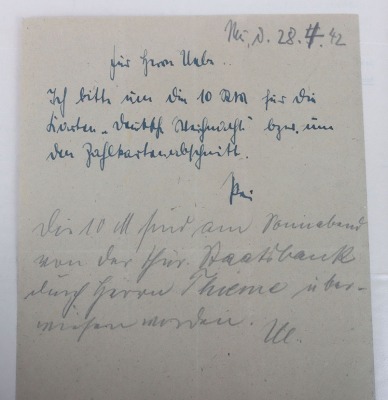 Mü, d. 28. 4. 42
für Herrn
Ich bitte um die 10 RM für die
Karten „Deutsche Weihnacht“ bzw. um
den Zahlkartenabschnitt.
Die 10 M sind am Sonnabend
von der Thür. Staatsbank
durch Herrn Thieme über-
wiesen worden. Ue.